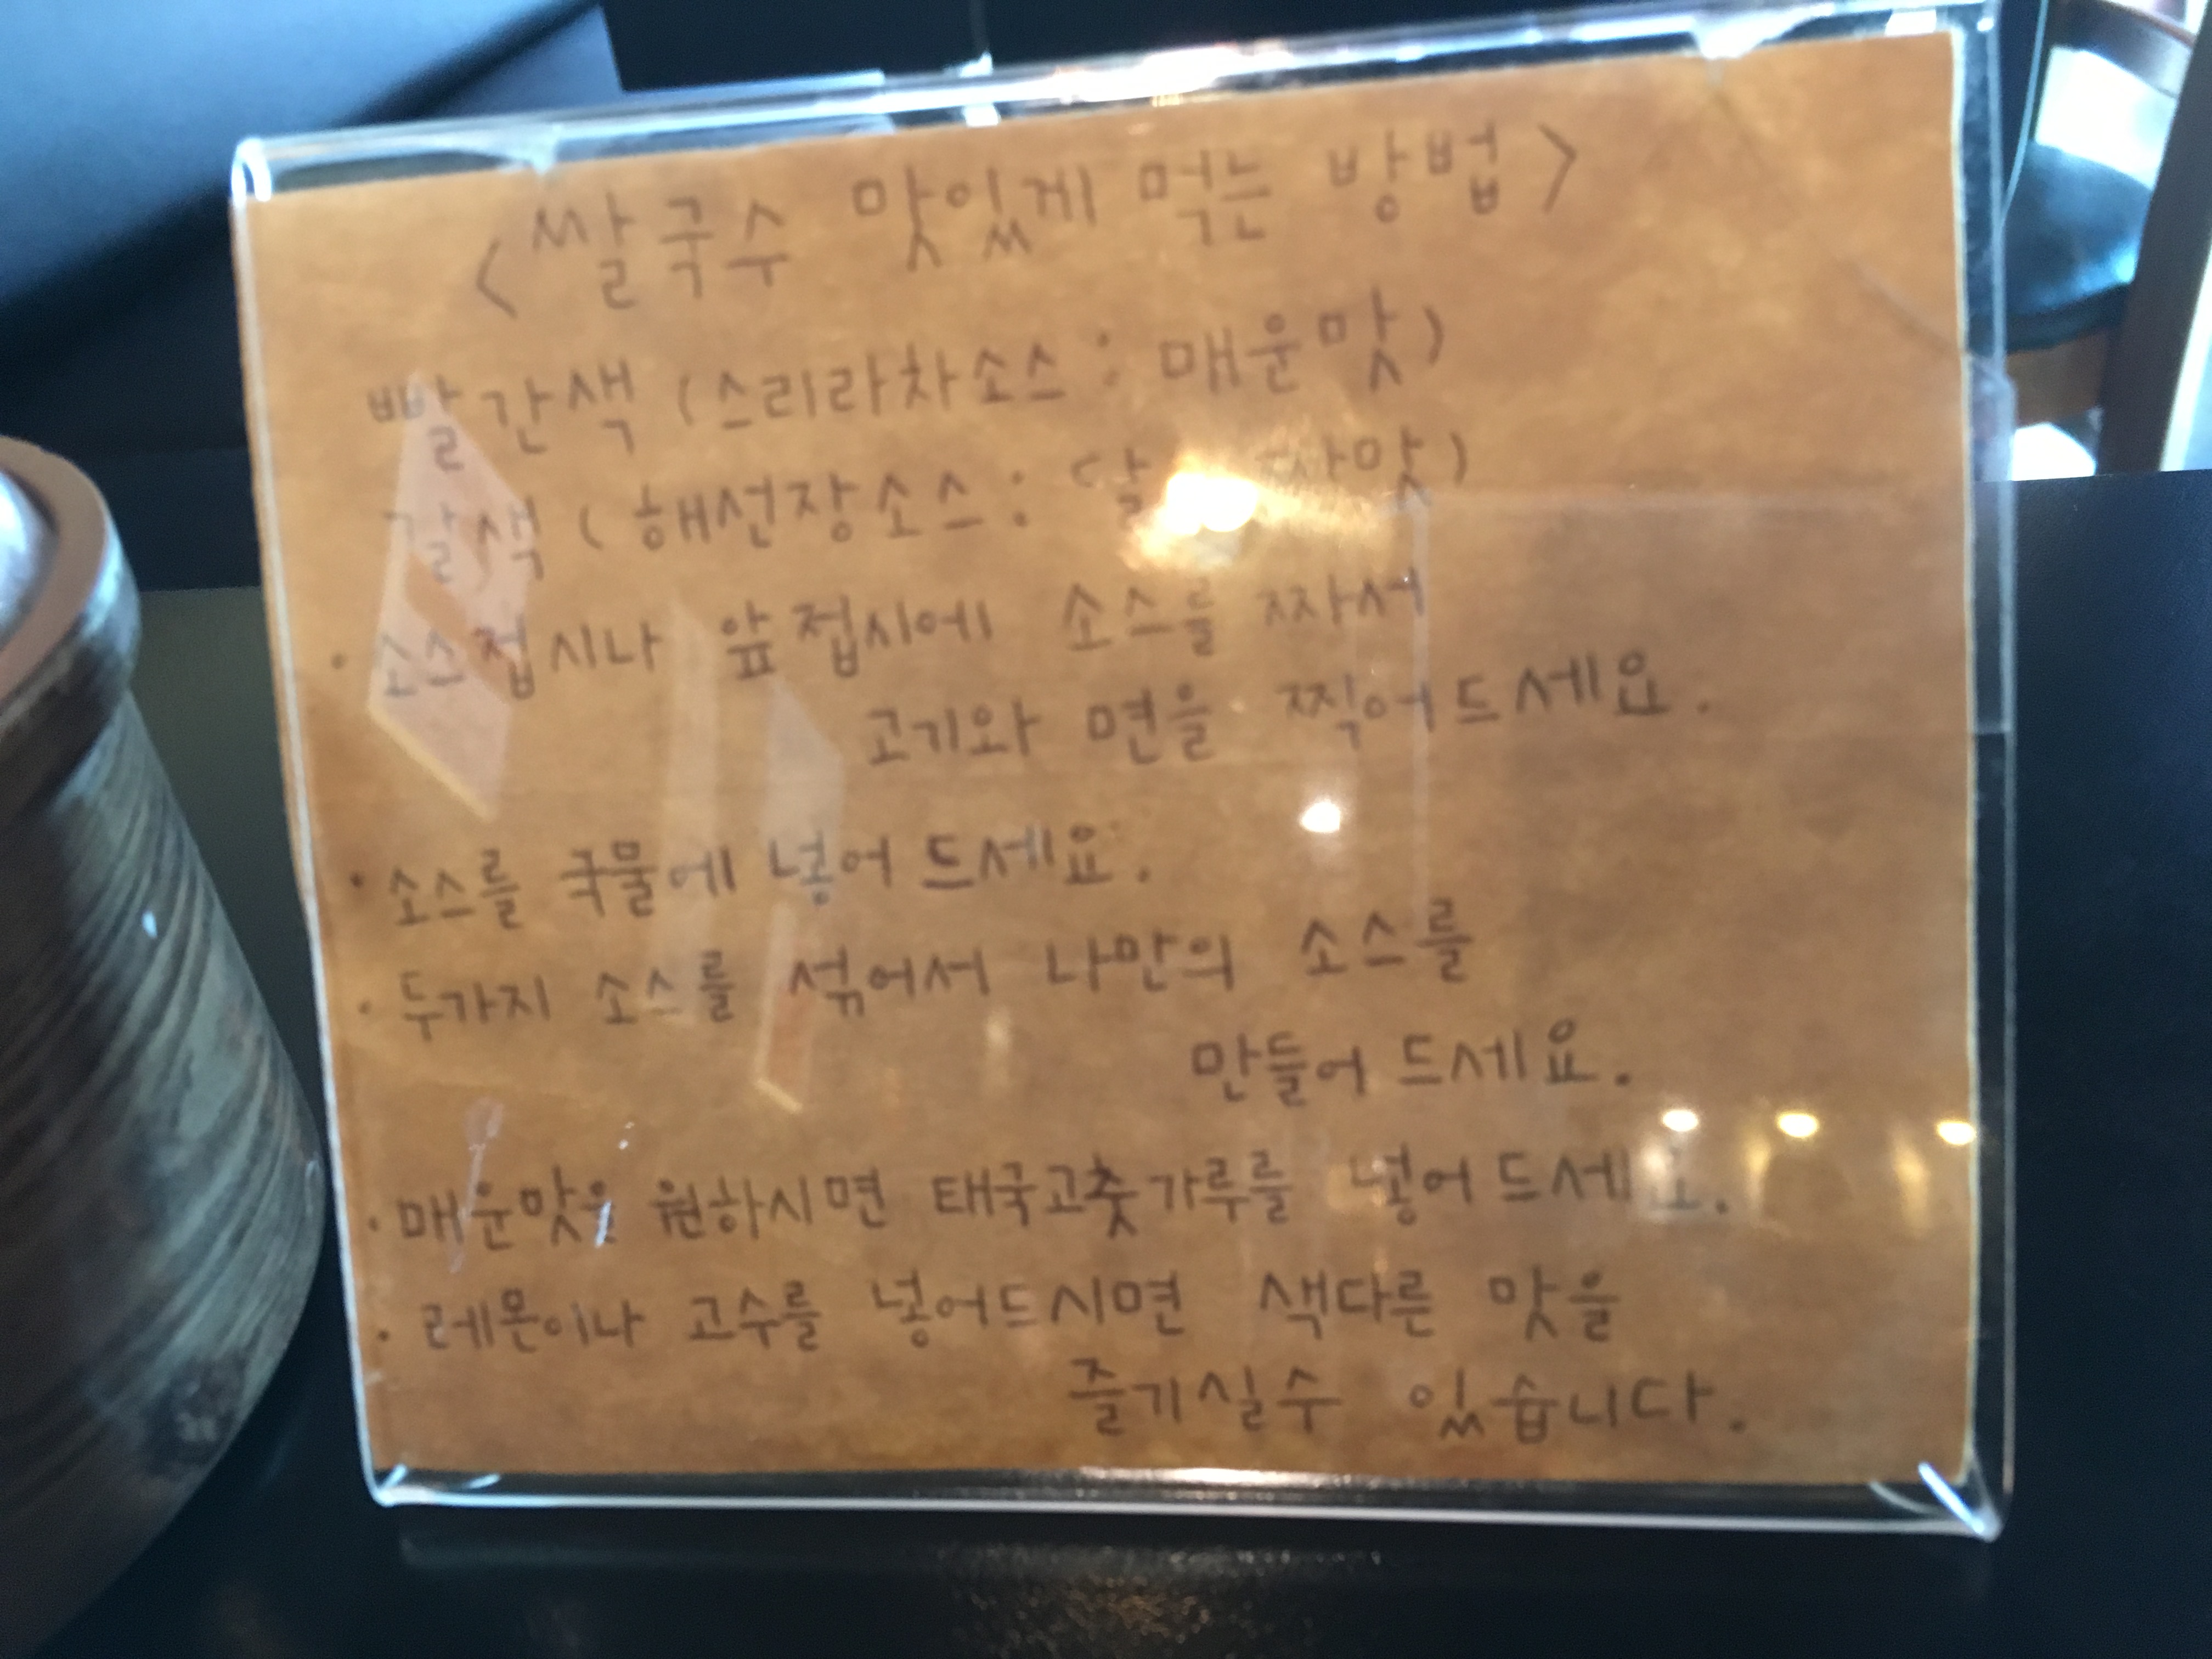 <쌀국수 맛있게 먹는 방법>
빨간색 (스리라차소스 : 매운맛)
갈색 (해선장소스 :
· 소스접시나 앞접시에 소스를 짜서
고기와 면을 찍어드세요.
· 소스를 국물에 넣어 드세요.
· 두가지 소스를 섞어서 나만의 소스를
만들어 드세요.
· 매운맛을 원하시면 태국고춧가루를 넣어드세요.
· 레몬이나 고수를 넣어드시면 색다른 맛을
즐기실수 있습니다.